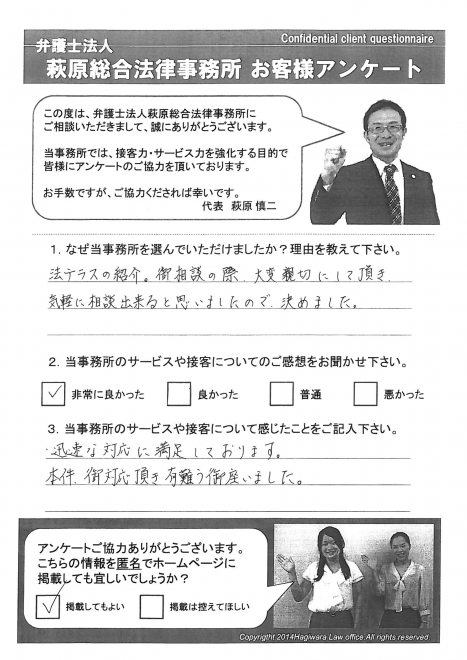 Confidential client questionnaire
弁護士法人
萩原総合法律事務所 お客様アンケート
この度は、弁護士法人萩原総合法律事務所に
ご相談いただきまして、誠にありがとうございます。
当事務所では、接客力・サービス力を強化する目的で
皆様にアンケートのご協力を頂いております。
お手数ですが、ご協力くだされば幸いです。
代表 萩原 慎二
1．なぜ当事務所を選んでいただけましたか？理由を教えて下さい。
法テラスの紹介。御相談の際、大変親切にして頂き、
気軽に相談出来ると思いましたので、決めました。
2．当事務所のサービスや接客についてのご感想をお聞かせ下さい。
✓ 非常に良かった 良かった 普通 悪かった
3．当事務所のサービスや接客について感じたことをご記入下さい。
・迅速な対応に満足しております。
本件、御対応頂き有難う御座いました。
アンケートご協力ありがとうございます。
こちらの情報を匿名でホームページに
掲載しても宜しいでしょうか？
✓ 掲載してもよい 掲載は控えてほしい
Copyright 2014Hagiwara Law office.All rights reserved.